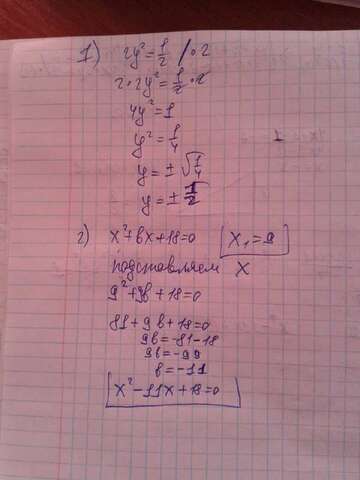 1) 2y²=1/2 /·2
2·2y²=1/2·2
4y²=1
y²=1/4
y=±√1/4
y=±1/2
2) x²+bx+18=0 x₁=9
подставляем x
9²+9b+18=0
81+9b+18=0
9b=-81-18
9b=-99
b=-11
x²-11x+18=0